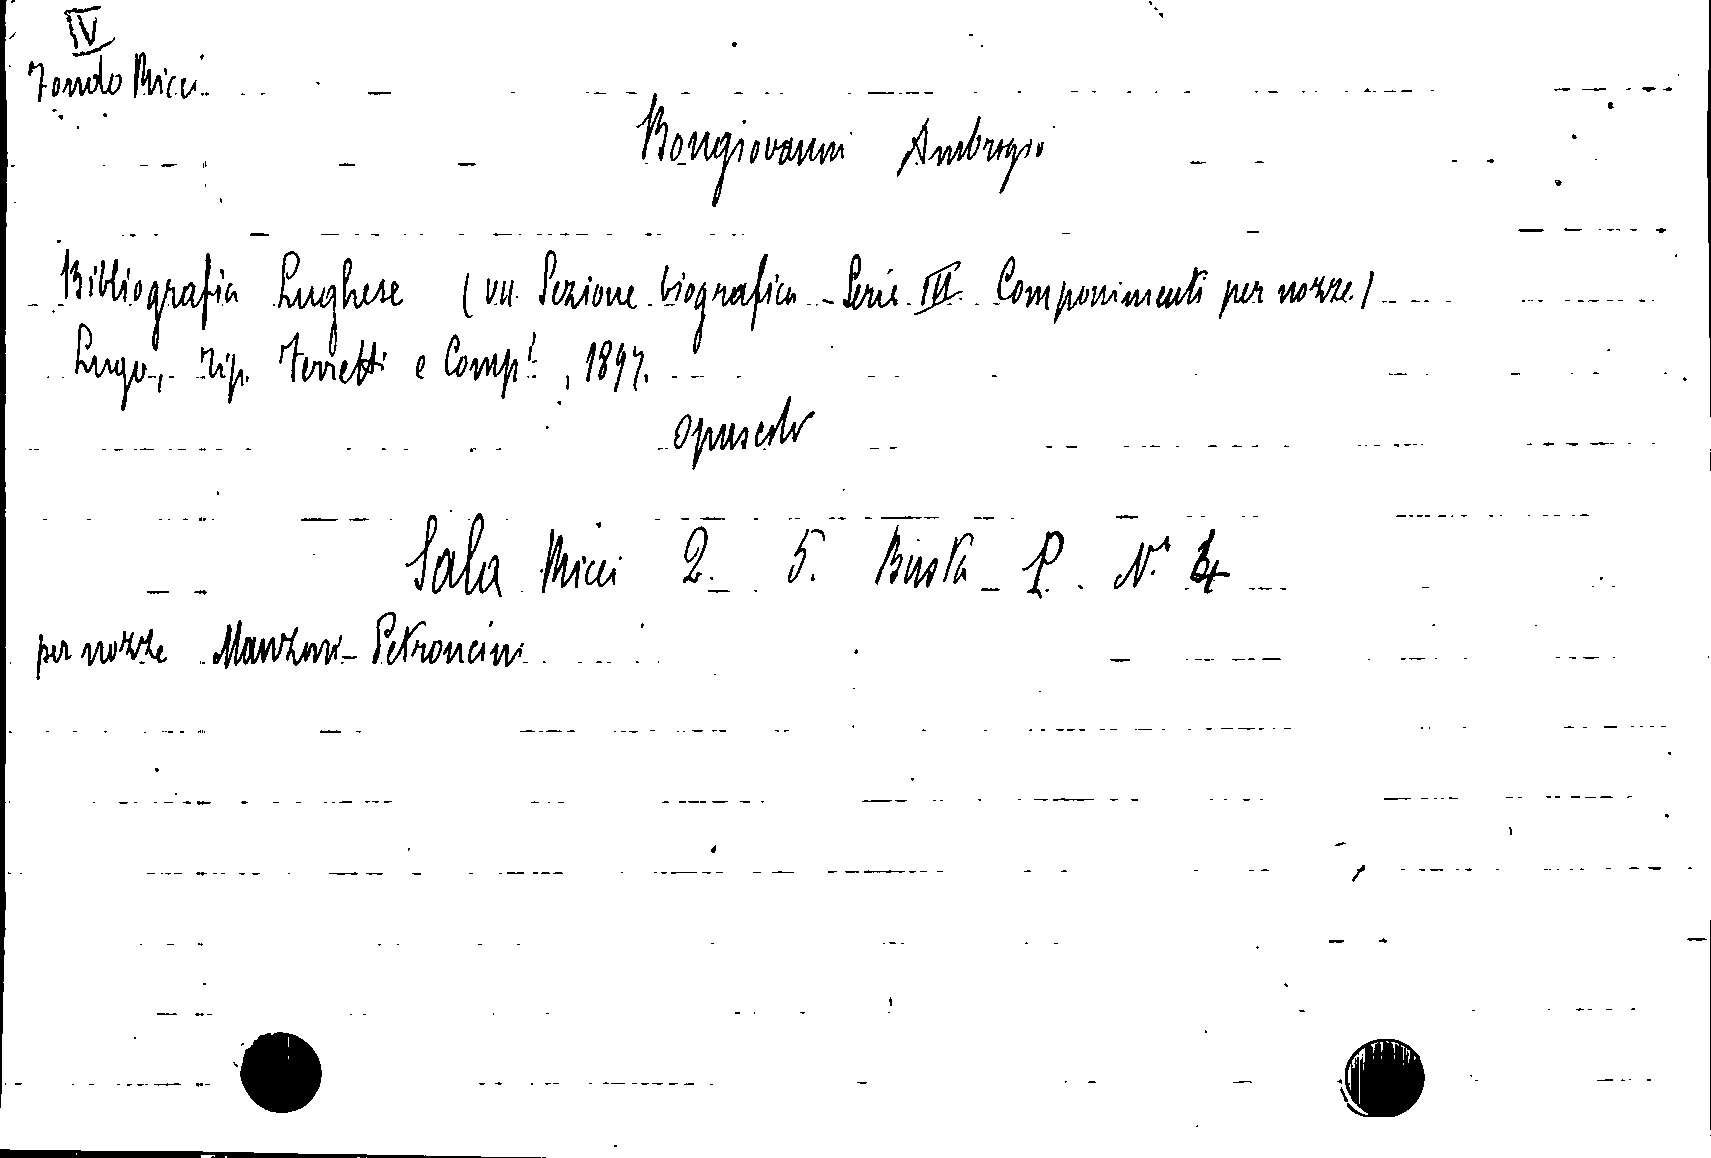 IV
Fondo Ricci
Bongiovanni Ambrogio
Bibliografia Lughese (VII Sezione biografica - Serie III Componimenti per nozze)
Lugo, Tip. Ferretti e Comp.i, 1897.
opuscolo
Sala Ricci 2. 5. Busta P. N.° 4
per nozze Manzoni - Petroncini